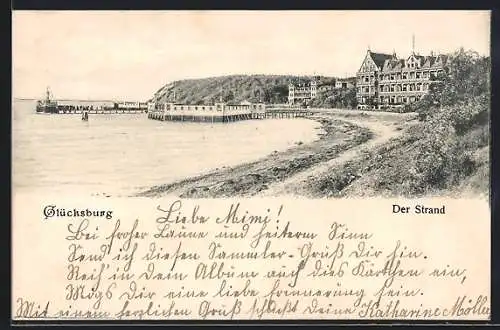 Glücksburg
Der Strand
Liebe Mimi!
Bei froher Laune und heiterm Sinn
Send ich diesen Sammler-Gruß Dir hin.
Reih' in Dein Album auch dies Kärtchen ein,
Mög's Dir eine liebe Erinnerung sein.
Mit einem herzlichen Gruß schließt Deine Katharina Möller